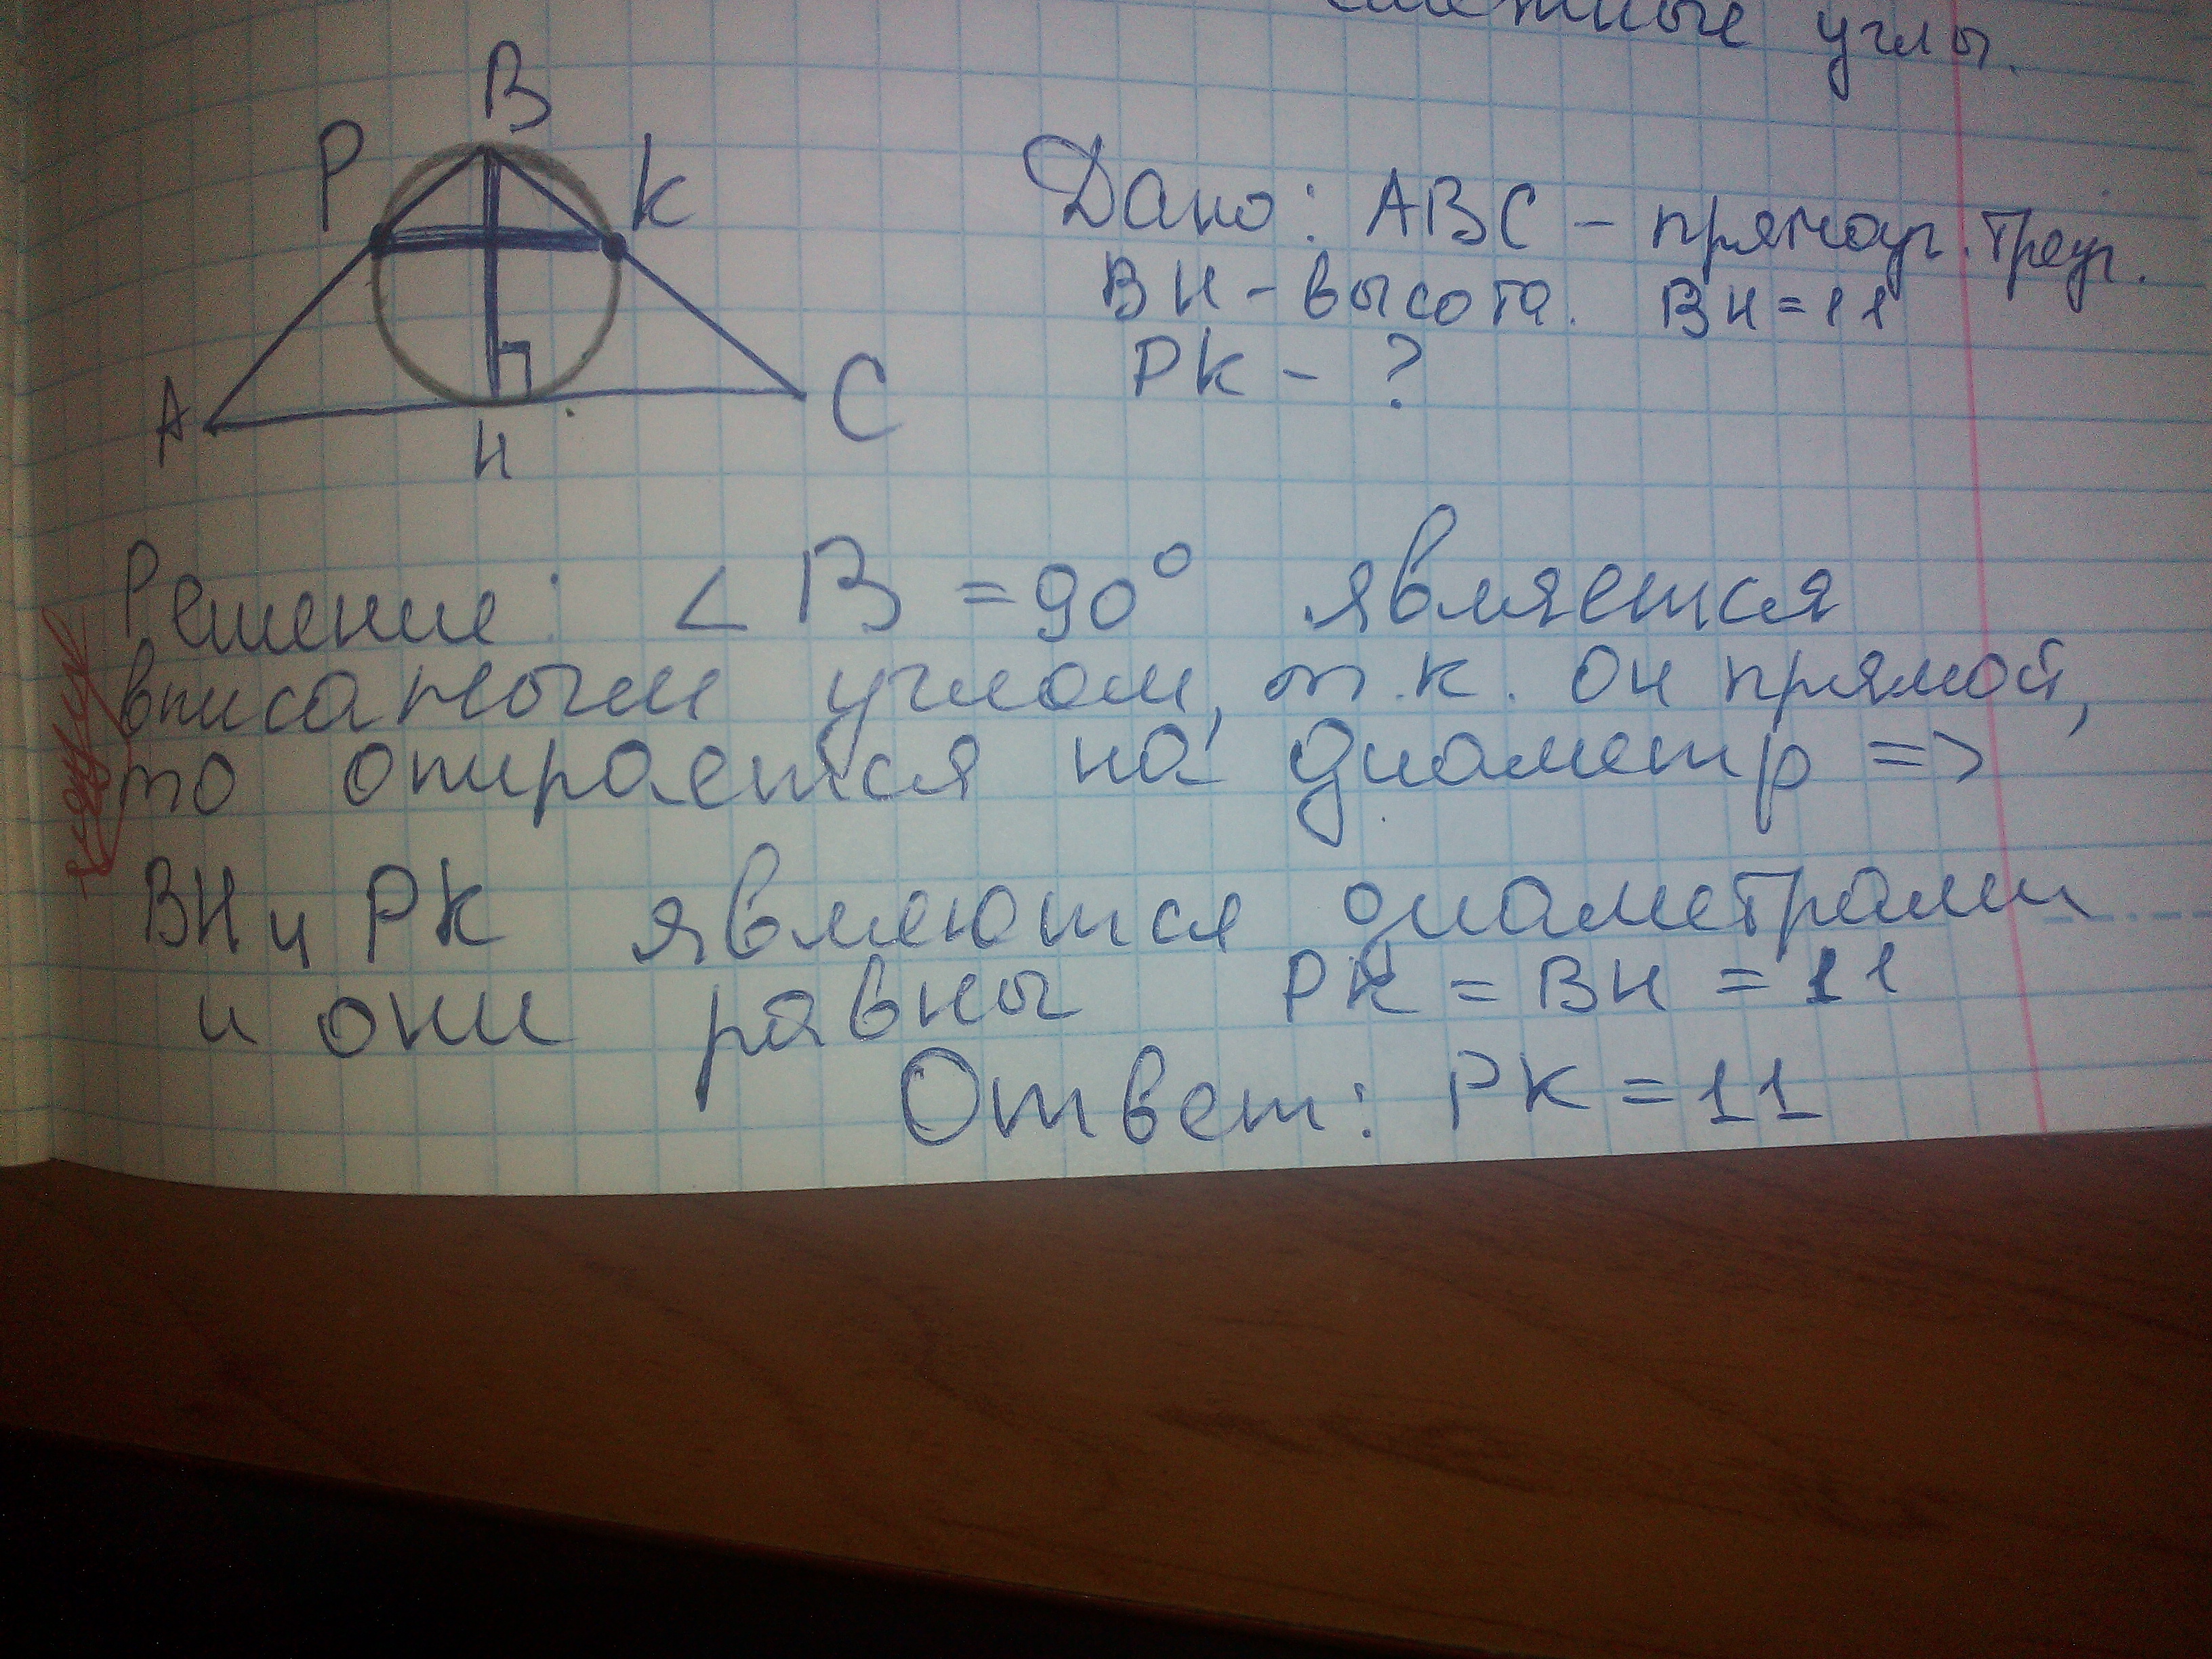 смежные углы.
B
P
K
A
H
C
Дано: ABC – прямоуг. треуг.
BH – высота. BH = 11
PK – ?
Решение: ∠B = 90° является
вписаным углом, т.к. он прямой,
то опирается на диаметр =>
BH и PK являются диаметрами
и они равны PK = BH = 11
Ответ: PK = 11